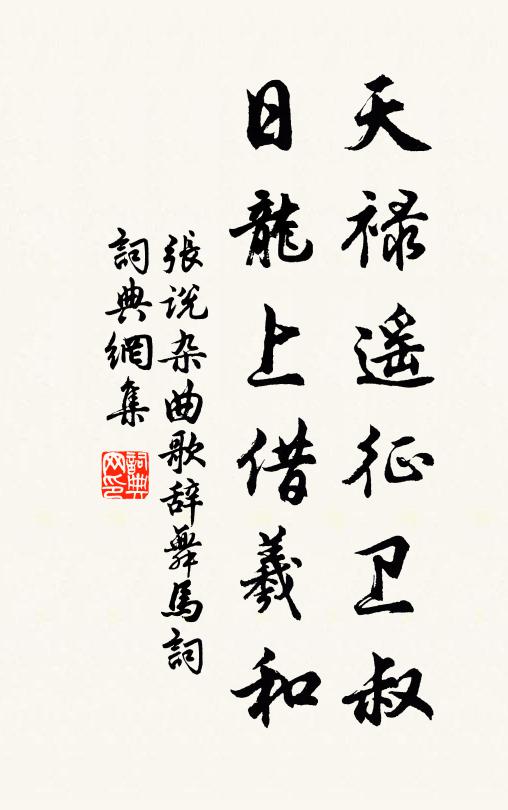 天禄遥征卫叔
日龍上借羲和
張说杂曲歌辞舞馬詞
詞典網集
詞典网印